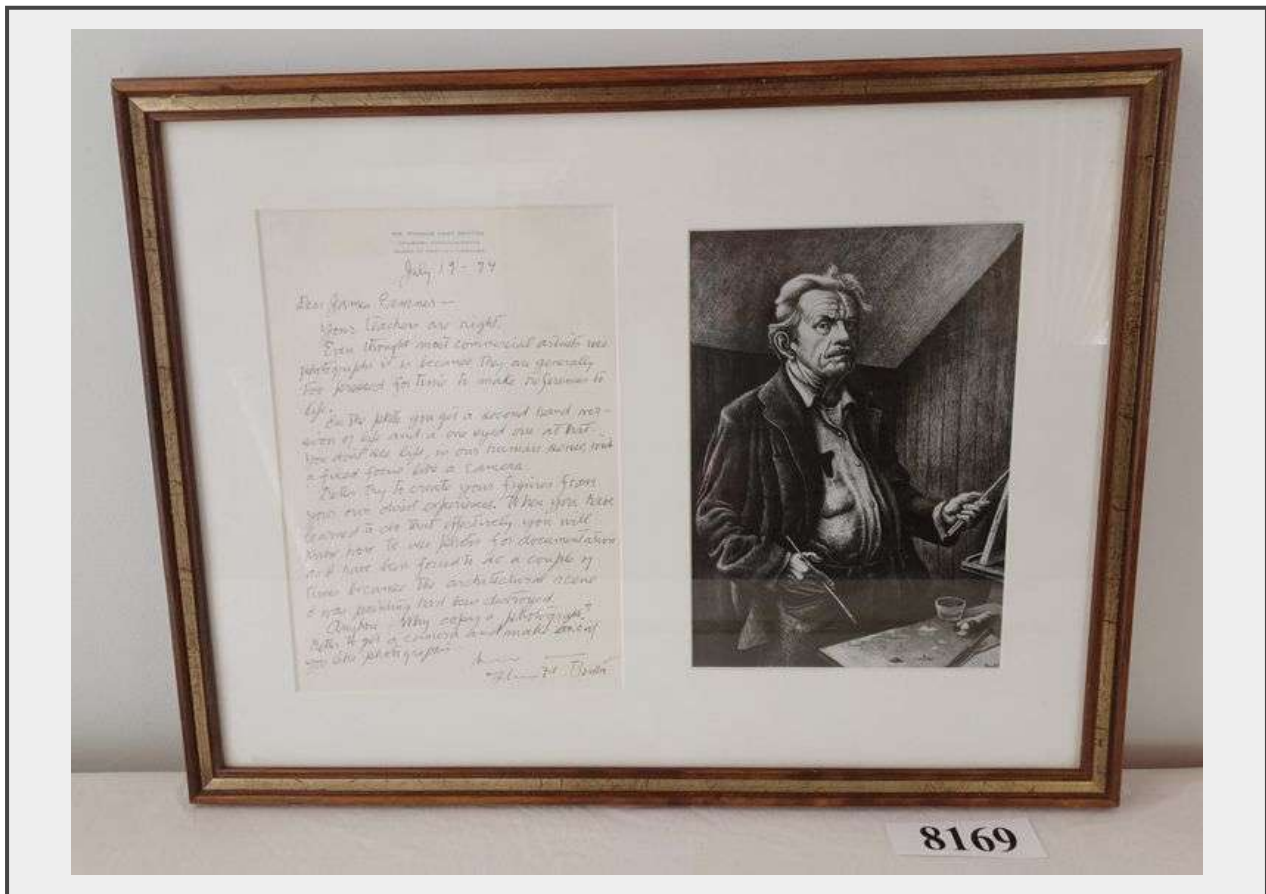 July 19 - 74
Dear James Cammer —
Your teachers are right.
Even thought most commercial artists use
photographs it is because they are generally
too pressed for time to make references to
life.
In the photo you get a second hand ver-
sion of life and a one eyed one at that.
You dont see life, in our human sense, with
a fixed focus like a camera.
Better try to create your figures from
your own direct experiences. When you have
learned to do that effectively you will
know how to use photos for documentation
I have been forced to do a couple of
times because the architectural scene
I was painting had been destroyed
Anyhow, Why copy a photograph?
Better to get a camera and make
photographs
Benton
8169